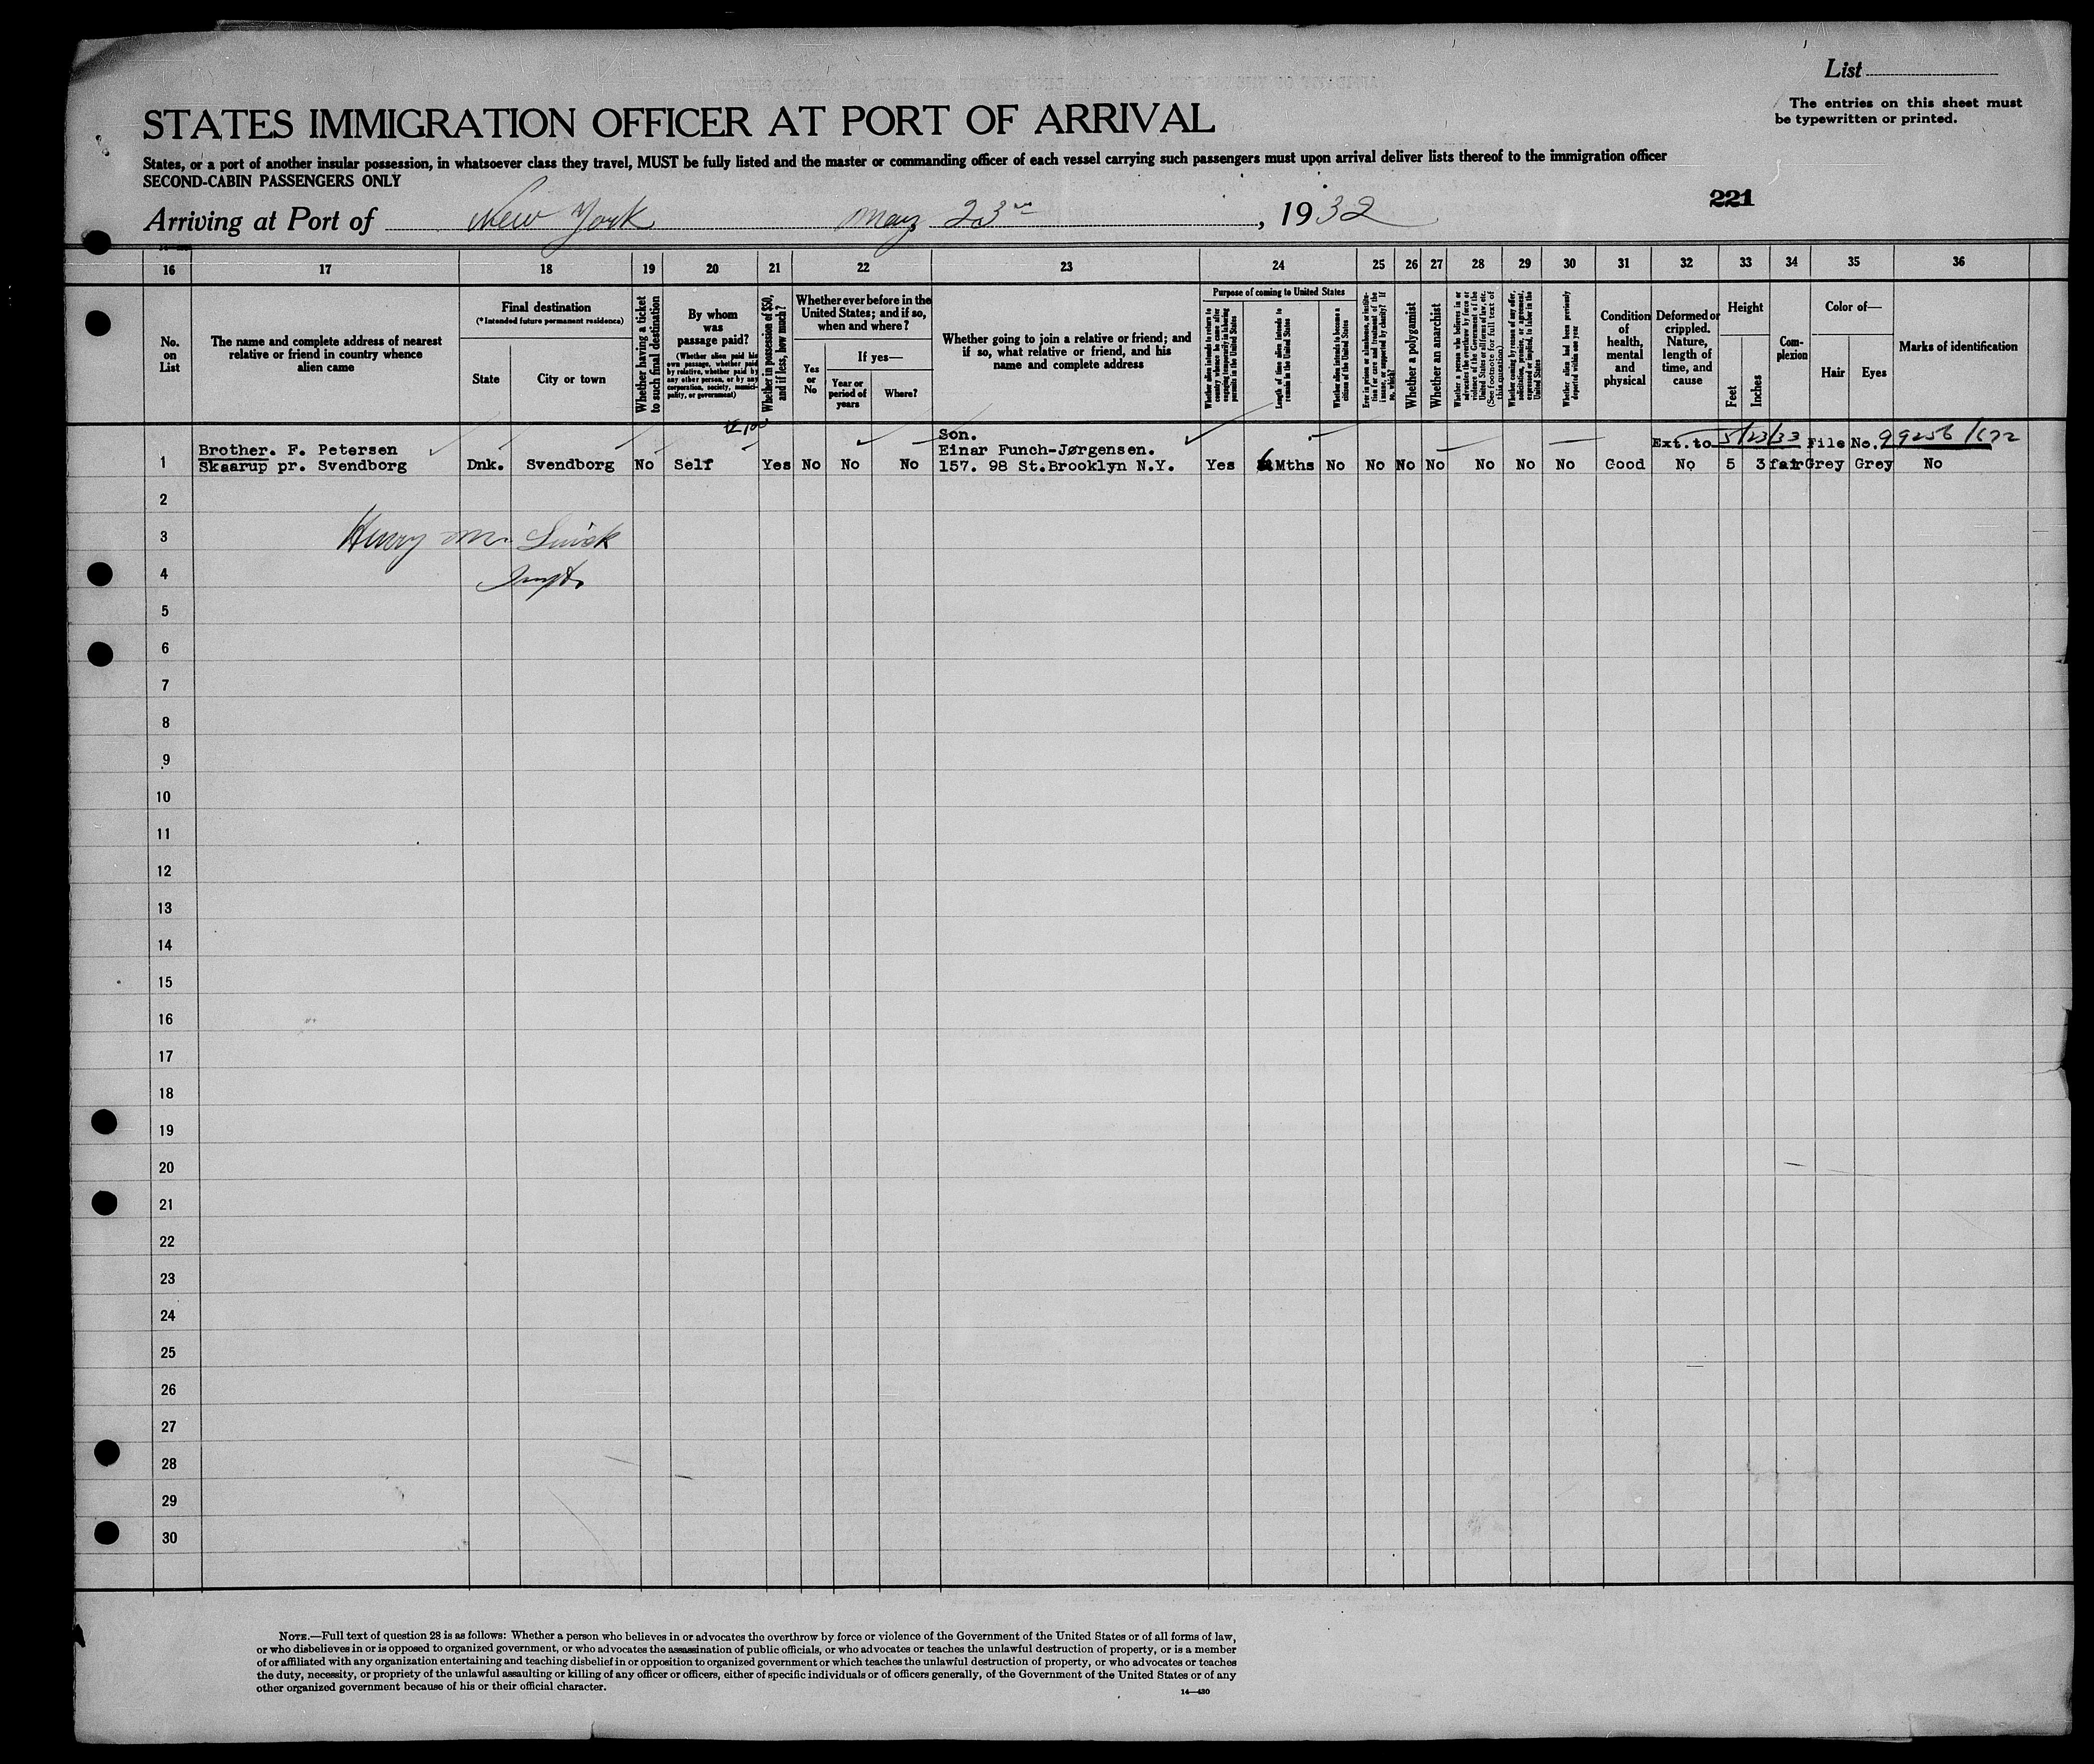 List
The entries on this sheet must
be typewritten or printed.
STATES IMMIGRATION OFFICER AT PORT OF ARRIVAL
States, or a port of another insular possession, in whatsoever class they travel, MUST be fully listed and the master or commanding officer of each vessel carrying such passengers must upon arrival deliver lists thereof to the immigration officer
SECOND-CABIN PASSENGERS ONLY
221
Arriving at Port of New York May 23rd, 1932
16 17 18 19 20 21 22 23 24 25 26 27 28 29 30 31 32 33 34 35 36
No.
on
List
The name and complete address of nearest
relative or friend in country whence
alien came
Final destination
(*Intended future permanent residence)
State
City or town
Whether having a ticket
to such final destination
By whom
was
passage paid?
(Whether alien paid his
own passage, whether paid
by relative, whether paid by
any other person, or by any
corporation, society, munici-
pality, or government)
Whether in possession of $50,
and if less, how much?
Whether ever before in the
United States; and if so,
when and where?
Yes
or
No
If yes—
Year or
period of
years
Where?
Whether going to join a relative or friend; and
if so, what relative or friend, and his
name and complete address
Purpose of coming to United States
Whether alien intends to return to
country whence he came after
engaging temporarily in laboring
pursuits in the United States
Length of time alien intends to
remain in the United States
Whether alien intends to become a
citizen of the United States
Ever in prison or almshouse, or institu-
tion for care and treatment of the
insane, or supported by charity? If
so, which?
Whether a polygamist
Whether an anarchist
Whether a person who believes in or
advocates the overthrow by force or
violence of the Government of the
United States or all forms of law, etc.
(See footnote for full text of
this question)
Whether coming by reason of any offer,
solicitation, promise, or agreement,
expressed or implied, to labor in the
United States
Whether alien had been previously
deported within one year
Condition
of
health,
mental
and
physical
Deformed or
crippled.
Nature,
length of
time, and
cause
Height
Feet
Inches
Com-
plexion
Color of—
Hair
Eyes
Marks of identification
Son.
Brother. F. Petersen Einar Funch-Jørgensen. Ext. to 5/23/33 File No. 99256/672
1 Skaarup pr. Svendborg Dnk. Svendborg No Self Yes No No No 157. 98 St.Brooklyn N.Y. Yes 6 Mths No No No No No No No Good No 5 3 fair Grey Grey No
2
3 Henry M.
4
5
6
7
8
9
10
11
12
13
14
15
16
17
18
19
20
21
22
23
24
25
26
27
28
29
30
NOTE.—Full text of question 28 is as follows: Whether a person who believes in or advocates the overthrow by force or violence of the Government of the United States or of all forms of law,
or who disbelieves in or is opposed to organized government, or who advocates the assassination of public officials, or who advocates or teaches the unlawful destruction of property, or is a member
of or affiliated with any organization entertaining and teaching disbelief in or opposition to organized government or which teaches the unlawful destruction of property, or who advocates or teaches
the duty, necessity, or propriety of the unlawful assaulting or killing of any officer or officers, either of specific individuals or of officers generally, of the Government of the United States or of any
other organized government because of his or their official character.
14—430